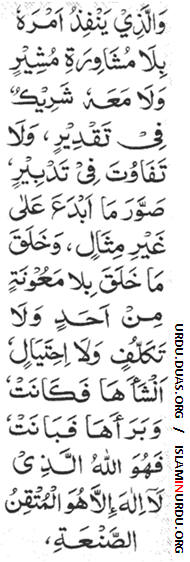 وَالَّذِي يَنْفِذُ اَمْرَهُ
بِلَا مُشَاوِرَةِ مُشِيْرٍ
وَلَا مَعَهٗ شَرِيْكٌ
فِيْ تَقْدِيْرٍ، وَلَا
تَفَاوُتَ فِيْ تَدْبِيْرٍ
صَوَّرَ مَا اَبْدَعَ عَلٰى
غَيْرِ مِثَالٍ، وَخَلَقَ
مَا خَلَقَ بِلَا مَعُوْنَةٍ
مِنْ اَحَدٍ وَلَا
تَكَلُّفٍ وَلَا اِحْتِيَالٍ
اَنْشَأَهَا فَكَانَتْ
وَبَرَأَهَا فَبَانَتْ
فَهُوَ اللهُ الَّذِيْ
لَا اِلٰهَ اِلَّا هُوَ الْمُتْقِنُ
الصَّنْعَةِ،
URDU.DUAS.ORG / ISLAMINURDU.ORG